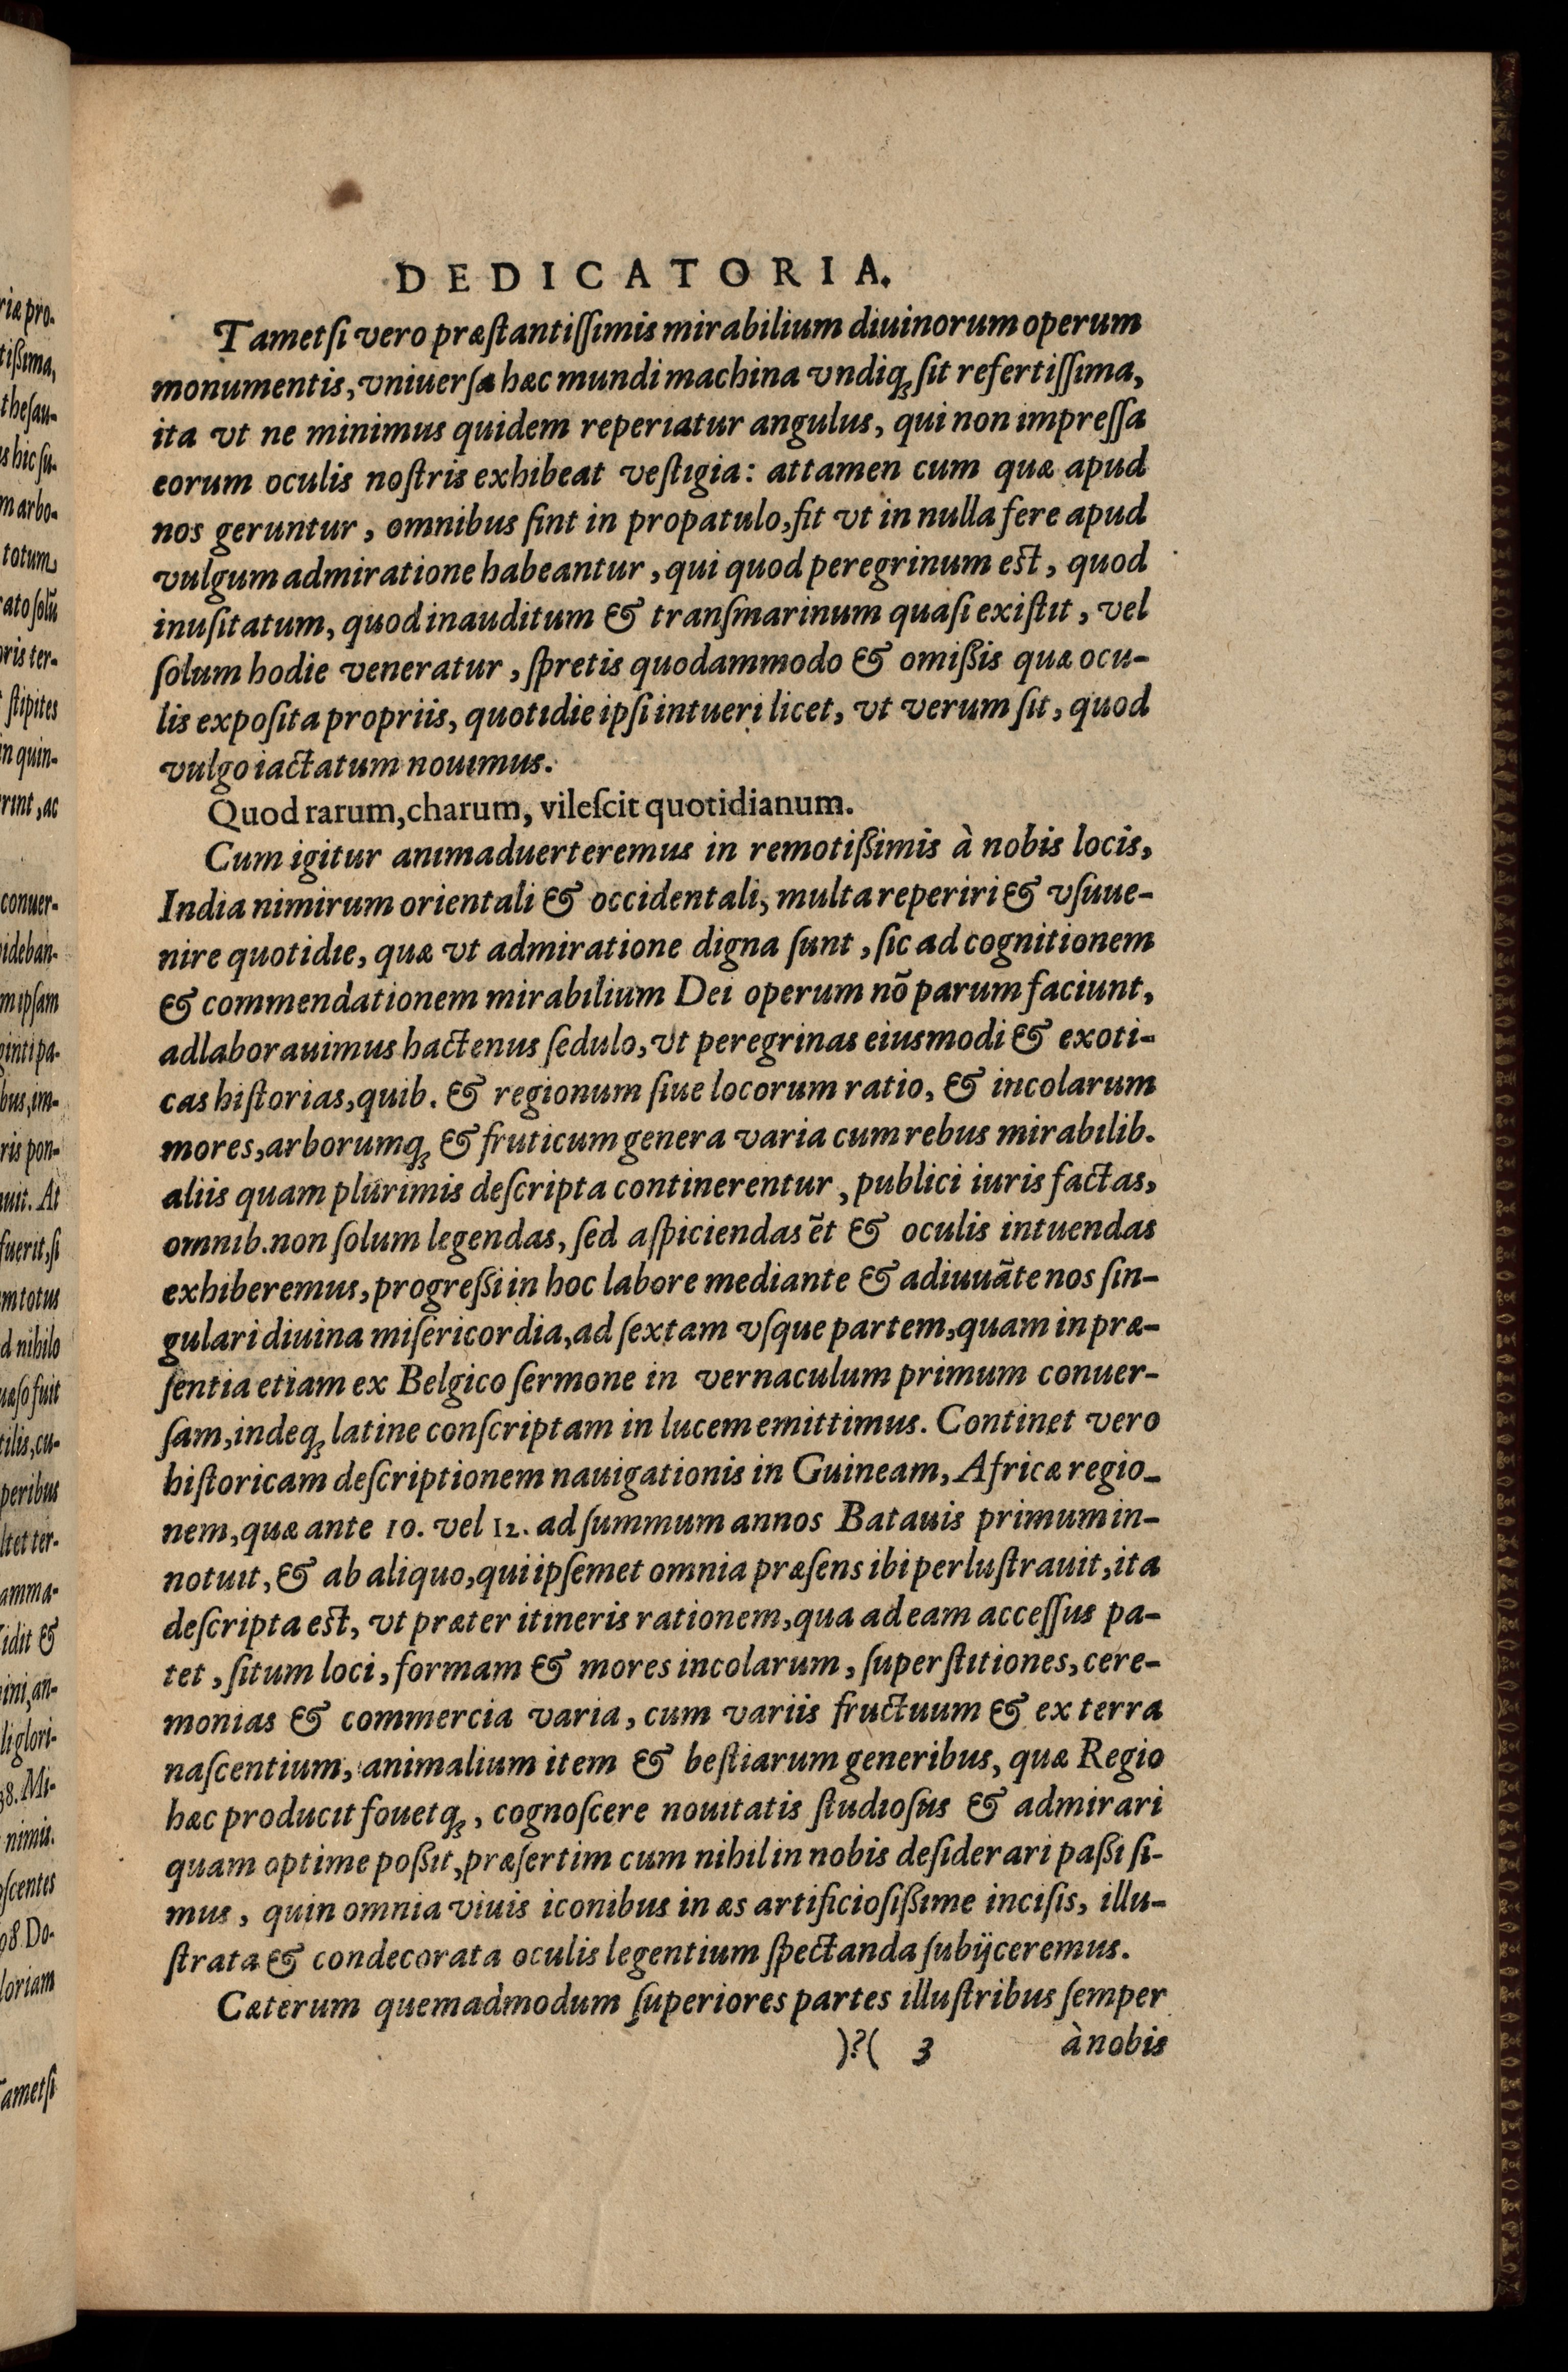 DEDICATORIA.
Tametſi vero præſtantiſſimis mirabilium diuinorum operum
monumentis, vniuerſa hæc mundi machina vndiqꝫ ſit refertiſſima,
ita vt ne minimus quidem reperiatur angulus, qui non impreſſa
eorum oculis noſtris exhibeat veſtigia: attamen cum quæ apud
nos geruntur, omnibus ſint in propatulo, fit vt in nulla fere apud
vulgum admiratione habeantur, qui quod peregrinum eſt, quod
inuſitatum, quod inauditum & tranſmarinum quaſi exiſtit, vel
ſolum hodie veneratur, ſpretis quodammodo & omißis quæ ocu-
lis expoſita propriis, quotidie ipſi intueri licet, vt verum ſit, quod
vulgo iactatum nouimus.
Quod rarum, charum, vileſcit quotidianum.
Cum igitur animaduerteremus in remotißimis à nobis locis,
India nimirum orientali & occidentali, multa reperiri & vſuue-
nire quotidie, quæ vt admiratione digna ſunt, ſic ad cognitionem
& commendationem mirabilium Dei operum nõ parum faciunt,
adlaborauimus hactenus ſedulo, vt peregrinas eiusmodi & exoti-
cas hiſtorias, quib. & regionum ſiue locorum ratio, & incolarum
mores, arborumqꝫ & fruticum genera varia cum rebus mirabilib.
aliis quam plurimis deſcripta continerentur, publici iuris factas,
omnib. non ſolum legendas, ſed aſpiciendas ēt & oculis intuendas
exhiberemus, progreßi in hoc labore mediante & adiuuāte nos ſin-
gulari diuina miſericordia, ad ſextam vſque partem, quam in præ-
ſentia etiam ex Belgico ſermone in vernaculum primum conuer-
ſam, indeqꝫ latine conſcriptam in lucem emittimus. Continet vero
hiſtoricam deſcriptionem nauigationis in Guineam, Africæ regio-
nem, quæ ante 10. vel 12. ad ſummum annos Batauis primum in-
notuit, & ab aliquo, qui ipſemet omnia præſens ibi perluſtrauit, ita
deſcripta eſt, vt præter itineris rationem, qua ad eam acceſſus pa-
tet, ſitum loci, formam & mores incolarum, ſuperſtitiones, cere-
monias & commercia varia, cum variis fructuum & ex terra
naſcentium, animalium item & beſtiarum generibus, quæ Regio
hæc producit fouetqꝫ, cognoſcere nouitatis ſtudioſus & admirari
quam optime poßit, præſertim cum nihil in nobis deſiderari paßi ſi-
mus, quin omnia viuis iconibus in æs artificioſißime inciſis, illu-
ſtrata & condecorata oculis legentium ſpectanda ſubijceremus.
Cæterum quemadmodum ſuperiores partes illuſtribus ſemper
)?( 3 à nobis
riæ pro-
tißima,
theſau-
s hic ſu-
m arbo-
totum
rato ſolũ
oris ter-
ſtipites
in quin-
rint, ac
conuer-
ideban-
m ipſam
inti pa-
bus, im-
ris pon-
uit. At
fuerit, ſi
m totus
d nihilo
uæſo fuit
tilis, cu-
peribus
ltet ter-
amma-
idit &
ini, an-
li glori-
38. Mi-
nimii.
oſcentes
98. Do-
loriam
Tametſi